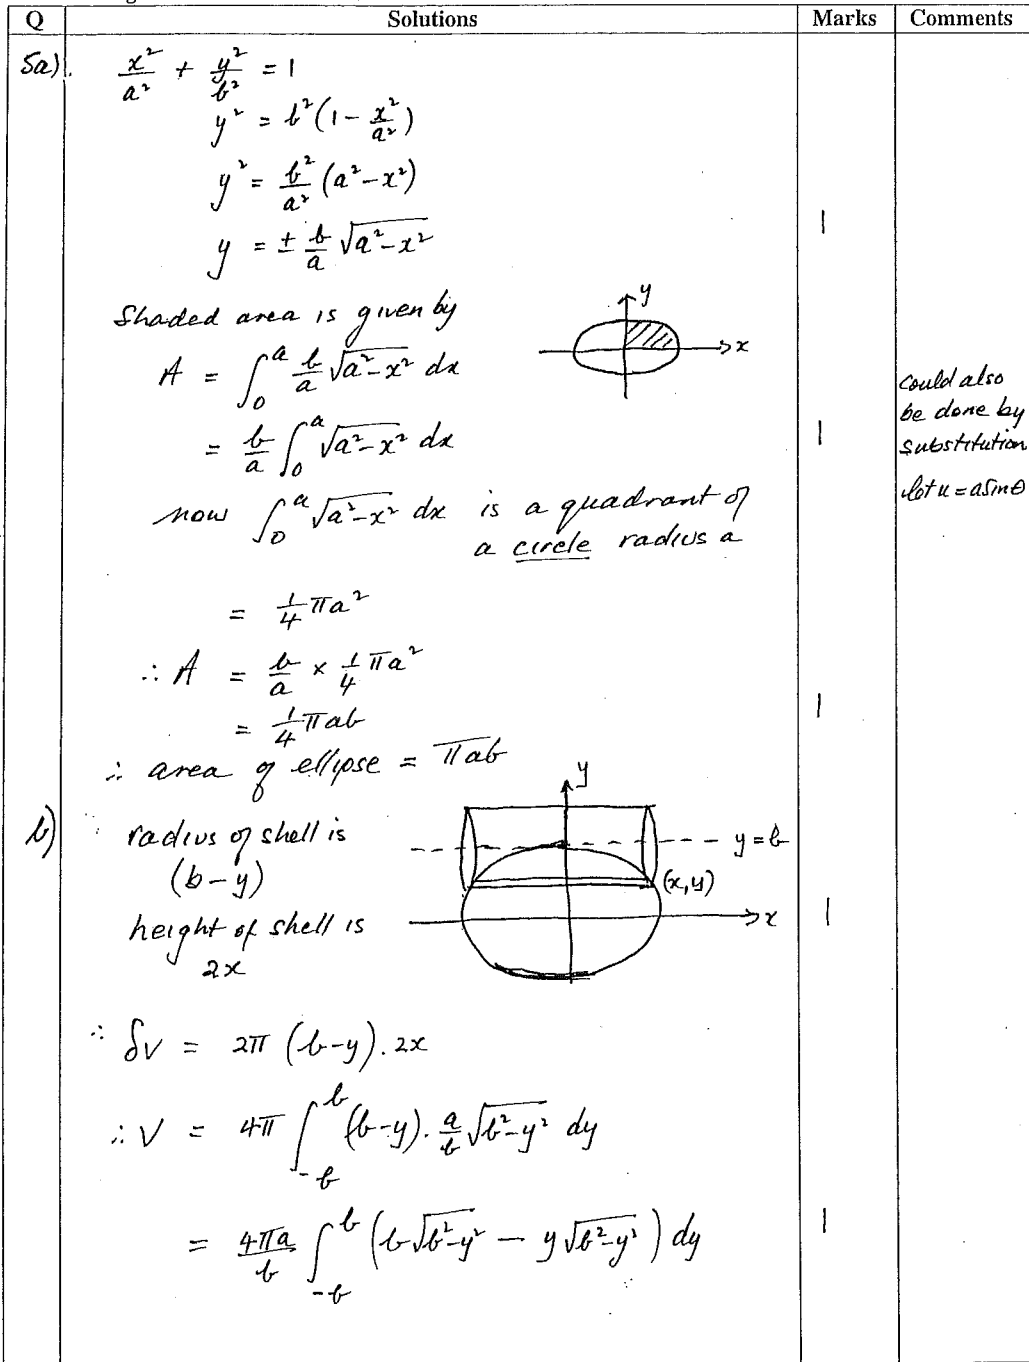 Q Solutions Marks Comments
5a). x²/a² + y²/b² = 1
y² = b²(1 - x²/a²)
y² = b²/a² (a² - x²)
y = ± b/a √(a² - x²) 1
Shaded area is given by
y
x
A = ∫₀ᵃ b/a √(a² - x²) dx
= b/a ∫₀ᵃ √(a² - x²) dx 1
could also
be done by
substitution
let u = a sinθ
now ∫₀ᵃ √(a² - x²) dx is a quadrant of
a circle radius a
= 1/4 πa²
∴ A = b/a × 1/4 πa²
= 1/4 πab 1
∴ area of ellipse = πab
b) radius of shell is
(b-y)
height of shell is
2x
y
y = b
(x, y)
x
1
∴ δV = 2π (b-y). 2x
∴ V = 4π ∫₋bᵇ (b-y). a/b √(b² - y²) dy
= 4πa/b ∫₋bᵇ (b√(b² - y²) - y√(b² - y²)) dy 1